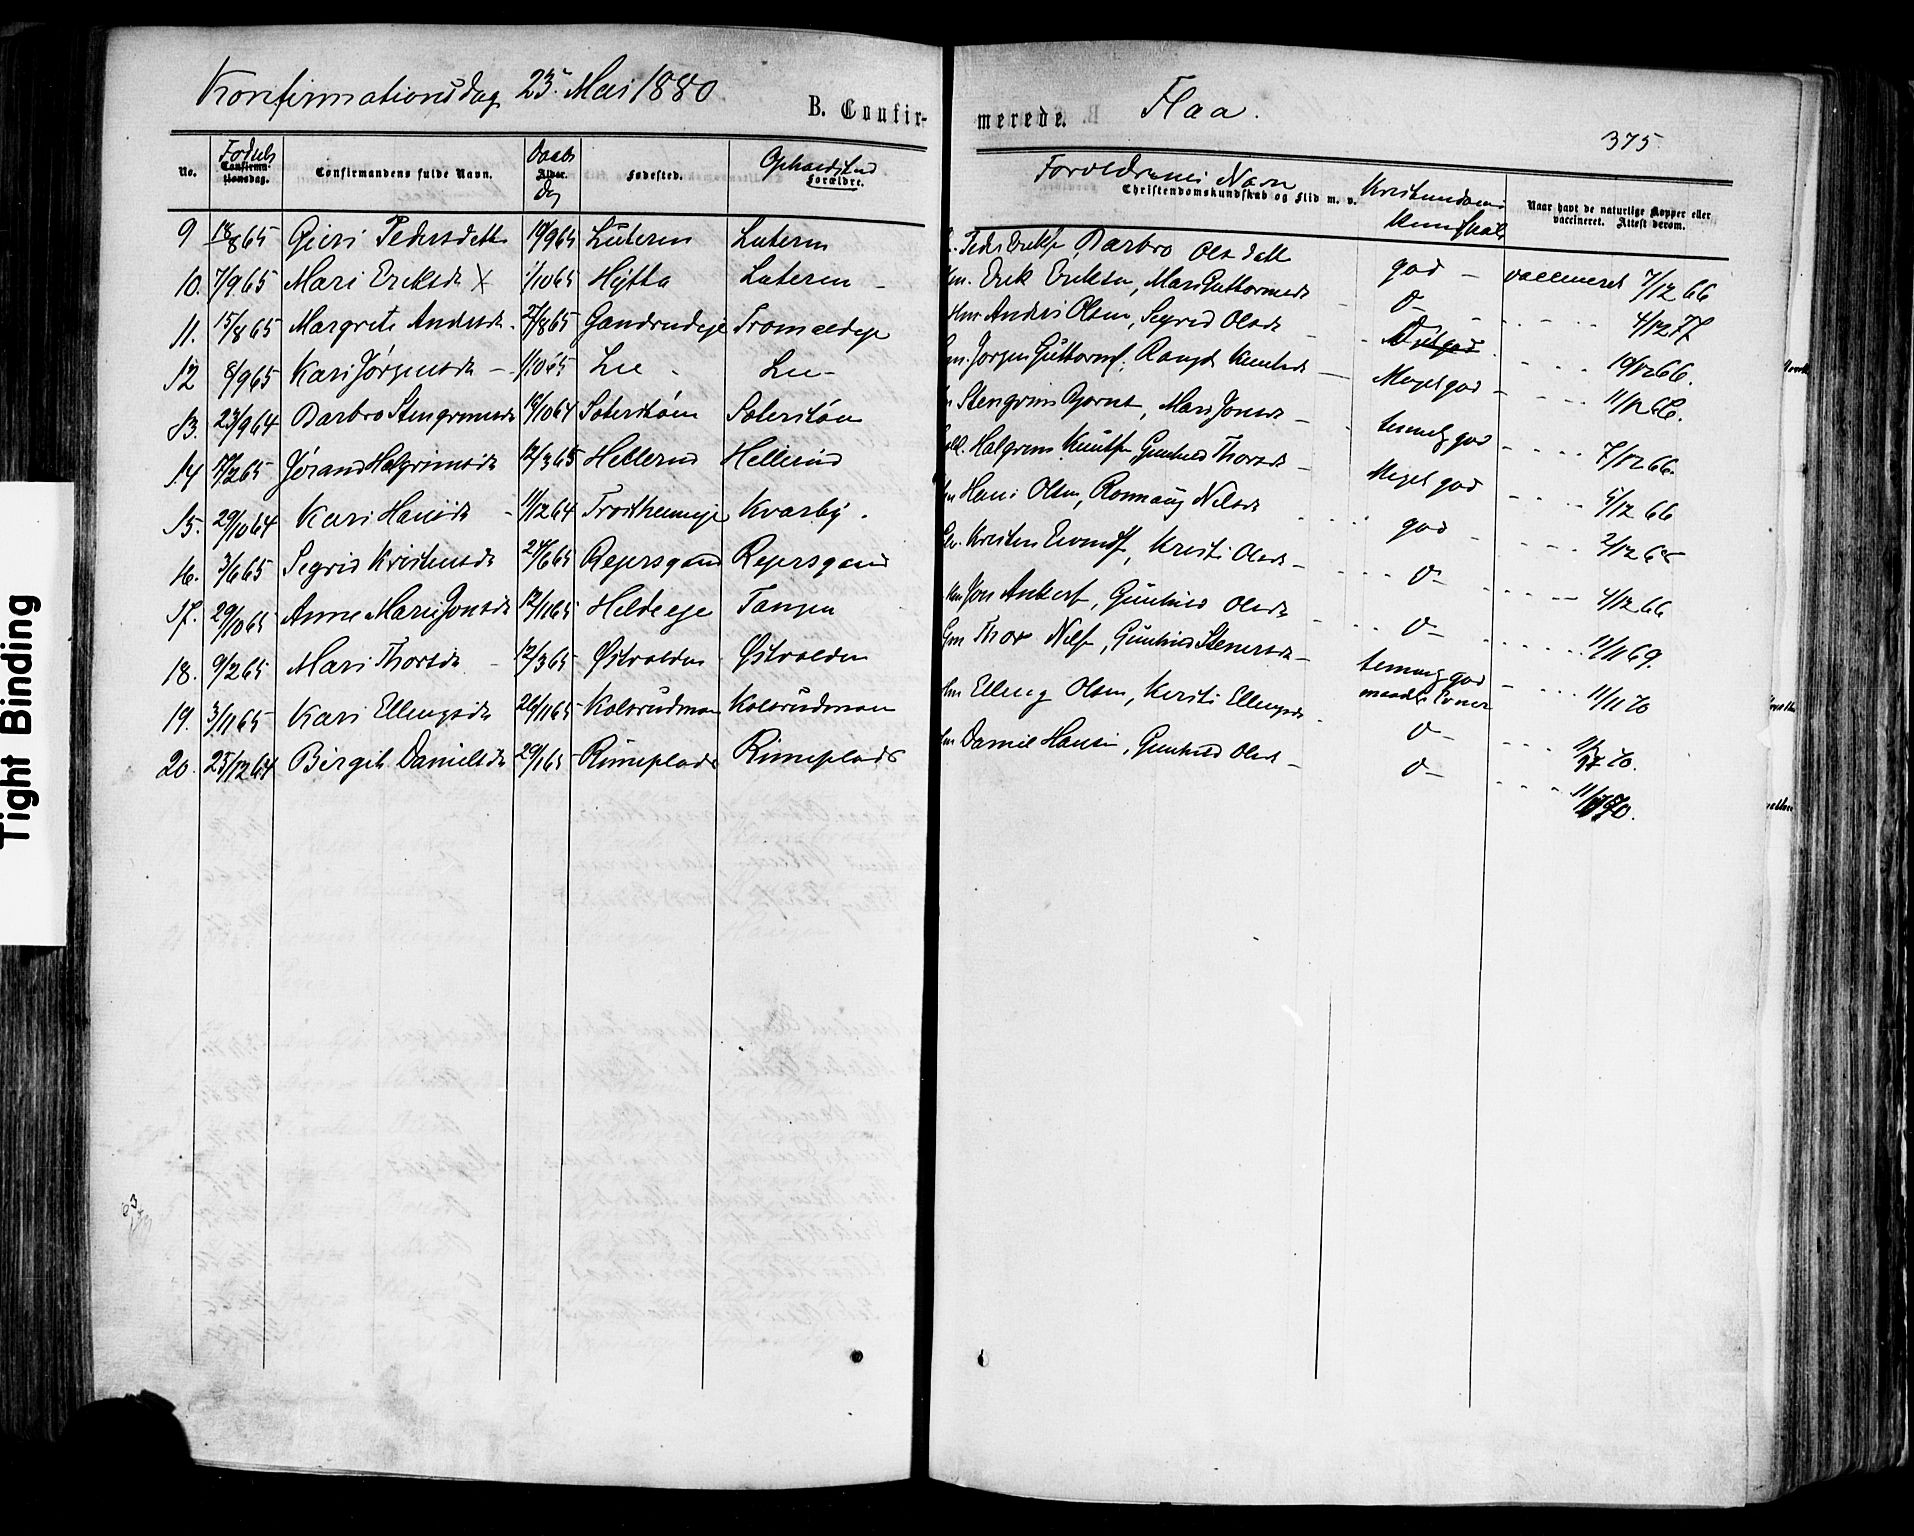 Konfirmationsdag 23 Mai 1880 B. Confir- merede. Flaa.
375
No. Fødsels Confirmationsdag. Confirmandens fulde Navn. Daabs Alder. Dag Fødested. Opholdssted Forældre. Forældrenes Navn Christendomskundskab og Flid m. v. Kristendoms Kundskab Naar havt de naturlige Kopper eller vaccineret. Attest derom.
9 18/8 65 Pedersdatt 19/9 65 Luteren Luteren Barbro Olsdatt god - vaccineret 7/12 66
10. 7/9 65 Mari Eriksdr X 1/10 65 Hytta Luteren - Erik Eriksen, Mari Guttormsdr - O- 4/12 77
11. 15/8 65 Margrete Andersdr. 27/8 65 Gandrudeje Tromaldeje Anders Olsen, Segrid Olsdr 19/12 66.
12 8/9 65 Kari Jørgensdr - 1/10 65 Lie - Lie - Jørgen Guttormf. Rangdi Knutsdr - Meget god - 11/12 66.
13. 23/9 64 Barbro Stengrimsdr 16/10 64 Sørbøn Stengrim Bjørns, Mari Jonsdr - temmelig god - 7/12 66.
14 17/2 65 Jørand Halgrimsdr 12/3 65 Hellerud Hellerud Halgrim Knutsen, Gunhild Thorsdr - Meget god 5/12 66
15. 29/10 64 Kari Hansdr - 11/12 64 Kvarby. Hans Olsen, Rønnaug Nelsdr god 2/12 65
16. 3/6 65 Segrid Kristensdr 24/6 65 Rejersgaard Rejersgaard Kristen Eivindf, Kristi Olsdr - O- 4/12 66
17. 29/10 65 Anne Mari Jonsdr 12/11 65 Helde eje Tangen Jon Ankerf, Gunhild Olsdr O- 11/11 69.
18. 9/2 65 Mari Thorsdr - 12/3 65 Østvolden Østvolden Thor Nelsf, Gunhild Stenersdr - temmelig god - 11/11 70
19. 3/11 65 Kari Ellingsdr 26/11 65 Kolsrudmoen Kolsrudmoen Elling Olsen, Kirsti Ellingsdr - maadel. Evner O-
20. 25/12 64 Birgit Danielsdr 29/1 65 Rimeplads Rimeplads Daniel Hansen, Gunhild Olsdr - O- 70.
Tight Binding